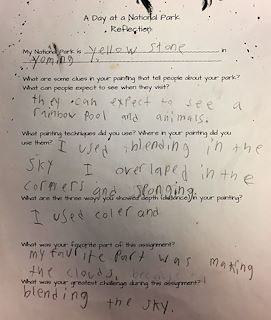 A Day at a National Park
Reflection
My National Park is yellow stone in
yoming.
What are some clues in your painting that tell people about your park?
What can people expect to see when they visit?
they can expect to see a
rainbow pool and animals.
What painting techniques did you use? Where in your painting did you
use them? I used blending in the
sky I overlaped in the
corners and sponging.
What are the three ways you showed depth (distance) in your painting?
I used coler and
What was your favorite part of this assignment?
my favrite part was making
the clouds,
What was your greatest challenge during this assignment?
blending the sky.